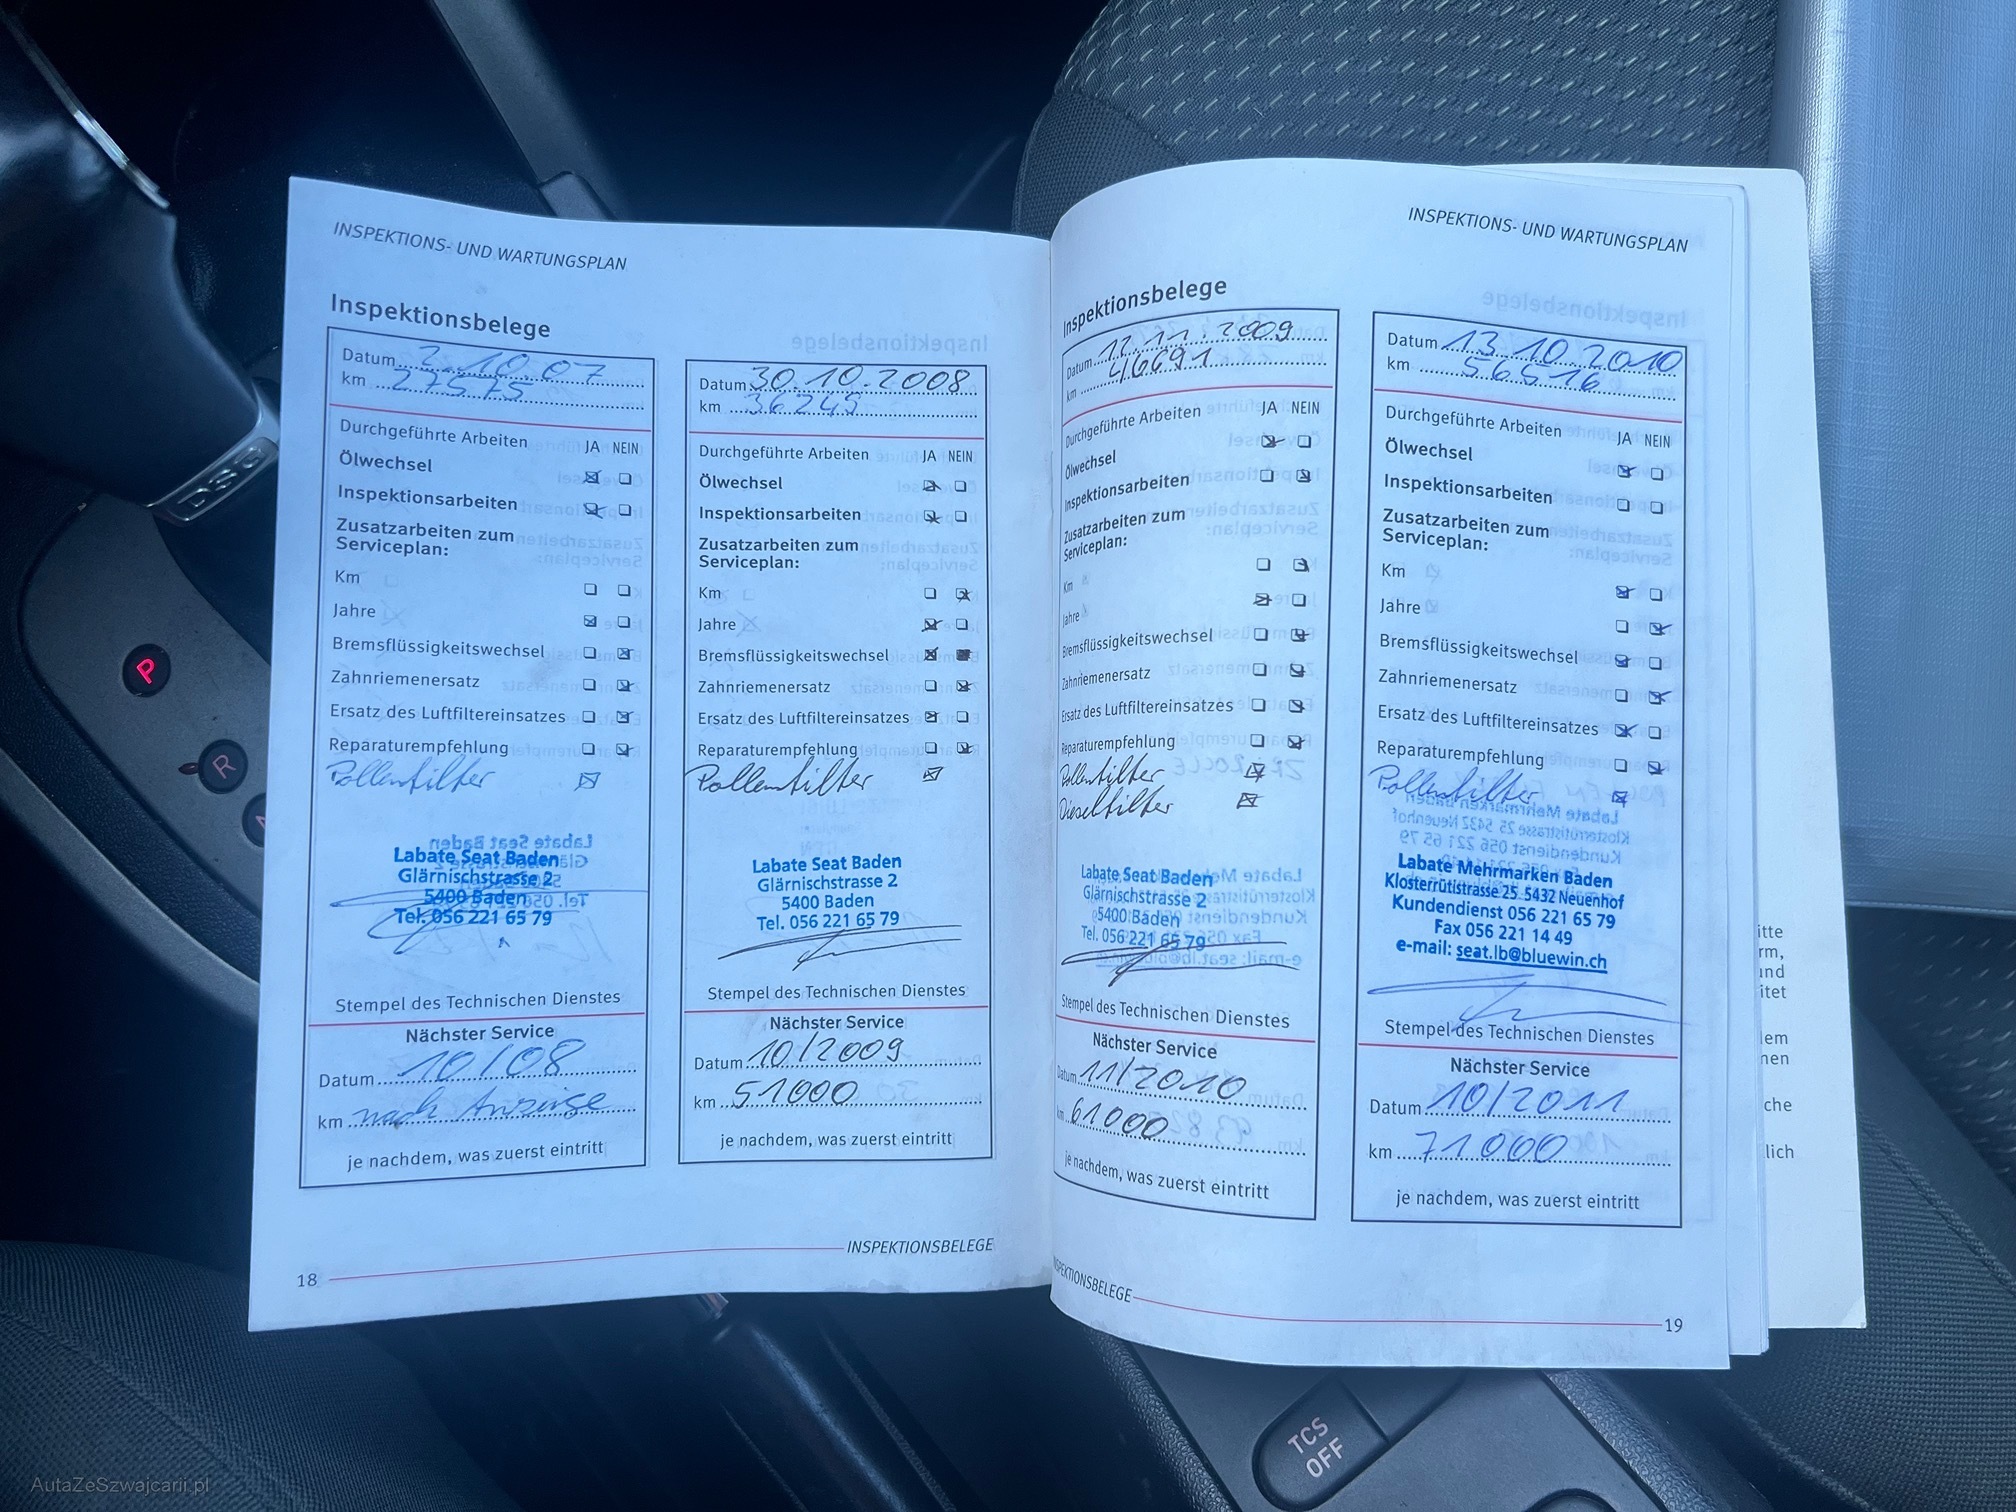 INSPEKTIONS- UND WARTUNGSPLAN
Inspektionsbelege
Datum 2.10.07
km 27575
Durchgeführte Arbeiten JA NEIN
Ölwechsel
Inspektionsarbeiten
Zusatzarbeiten zum
Serviceplan:
Km
Jahre
Bremsflüssigkeitswechsel
Zahnriemenersatz
Ersatz des Luftfiltereinsatzes
Reparaturempfehlung
Pollenfilter
Labate Seat Baden
Glärnischstrasse 2
5400 Baden
Tel. 056 221 65 79
Stempel des Technischen Dienstes
Nächster Service
Datum 10/08
km nach Anzeige
je nachdem, was zuerst eintritt
Datum 30.10.2008
km 36245
Durchgeführte Arbeiten JA NEIN
Ölwechsel
Inspektionsarbeiten
Zusatzarbeiten zum
Serviceplan:
Km
Jahre
Bremsflüssigkeitswechsel
Zahnriemenersatz
Ersatz des Luftfiltereinsatzes
Reparaturempfehlung
Pollenfilter
Labate Seat Baden
Glärnischstrasse 2
5400 Baden
Tel. 056 221 65 79
Stempel des Technischen Dienstes
Nächster Service
Datum 10/2009
km 51000
je nachdem, was zuerst eintritt
INSPEKTIONSBELEGE
18
INSPEKTIONS- UND WARTUNGSPLAN
Inspektionsbelege
Datum 12.11.2009
km 46691
Durchgeführte Arbeiten JA NEIN
Ölwechsel
Inspektionsarbeiten
Zusatzarbeiten zum
Serviceplan:
Km
Jahre
Bremsflüssigkeitswechsel
Zahnriemenersatz
Ersatz des Luftfiltereinsatzes
Reparaturempfehlung
Pollenfilter
Dieselfilter
Labate Seat Baden
Glärnischstrasse 2
5400 Baden
Tel. 056 221 65 79
Stempel des Technischen Dienstes
Nächster Service
Datum 11/2010
km 61000
je nachdem, was zuerst eintritt
Datum 13.10.2010
km 56516
Durchgeführte Arbeiten JA NEIN
Ölwechsel
Inspektionsarbeiten
Zusatzarbeiten zum
Serviceplan:
Km
Jahre
Bremsflüssigkeitswechsel
Zahnriemenersatz
Ersatz des Luftfiltereinsatzes
Reparaturempfehlung
Pollenfilter
Labate Mehrmarken Baden
Klosterrütistrasse 25 5432 Neuenhof
Kundendienst 056 221 65 79
Fax 056 221 14 49
e-mail: seat.lb@bluewin.ch
Stempel des Technischen Dienstes
Nächster Service
Datum 10/2011
km 71000
je nachdem, was zuerst eintritt
INSPEKTIONSBELEGE
19
DSG
P
R
TCS
OFF
AutaZeSzwajcarii.pl